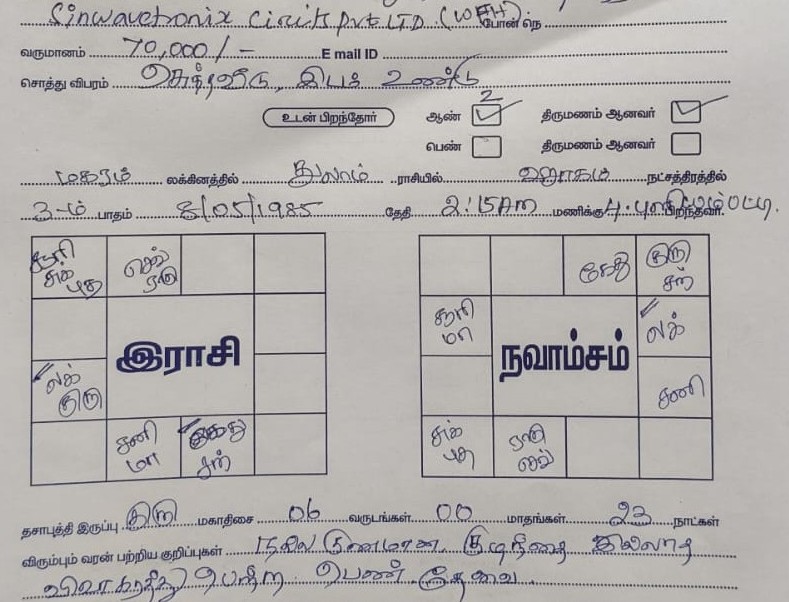 Sinwavetronix Circuits PVT LTD (WFH) போன் நெ
வருமானம் 70,000/- E mail ID
சொத்து விபரம் சொந்தவீடு, இடம் உண்டு
2
உடன் பிறந்தோர் ஆண் திருமணம் ஆனவர்
பெண் திருமணம் ஆனவர்
மகரம் லக்கினத்தில் துலாம் ராசியில் விசாகம் நட்சத்திரத்தில்
3-ம் பாதம் 8/05/1985 தேதி 2:15AM மணிக்கு பிறந்தவர்.
சூரி செவ் கேது குரு
சுக் ராகு சந்
புத
சூரி லக்
மா
இராசி நவாம்சம்
லக் சனி
குரு
சனி கேது சுக் ராகு
மா சந் புத செவ்
தசாபுத்தி இருப்பு குரு மகாதிசை 06 வருடங்கள் 00 மாதங்கள் 23 நாட்கள்
விரும்பும் வரன் பற்றிய குறிப்புகள் நல்ல குணமான, குழந்தை இல்லாத
விவாகரத்து பெற்ற பெண் தேவை.